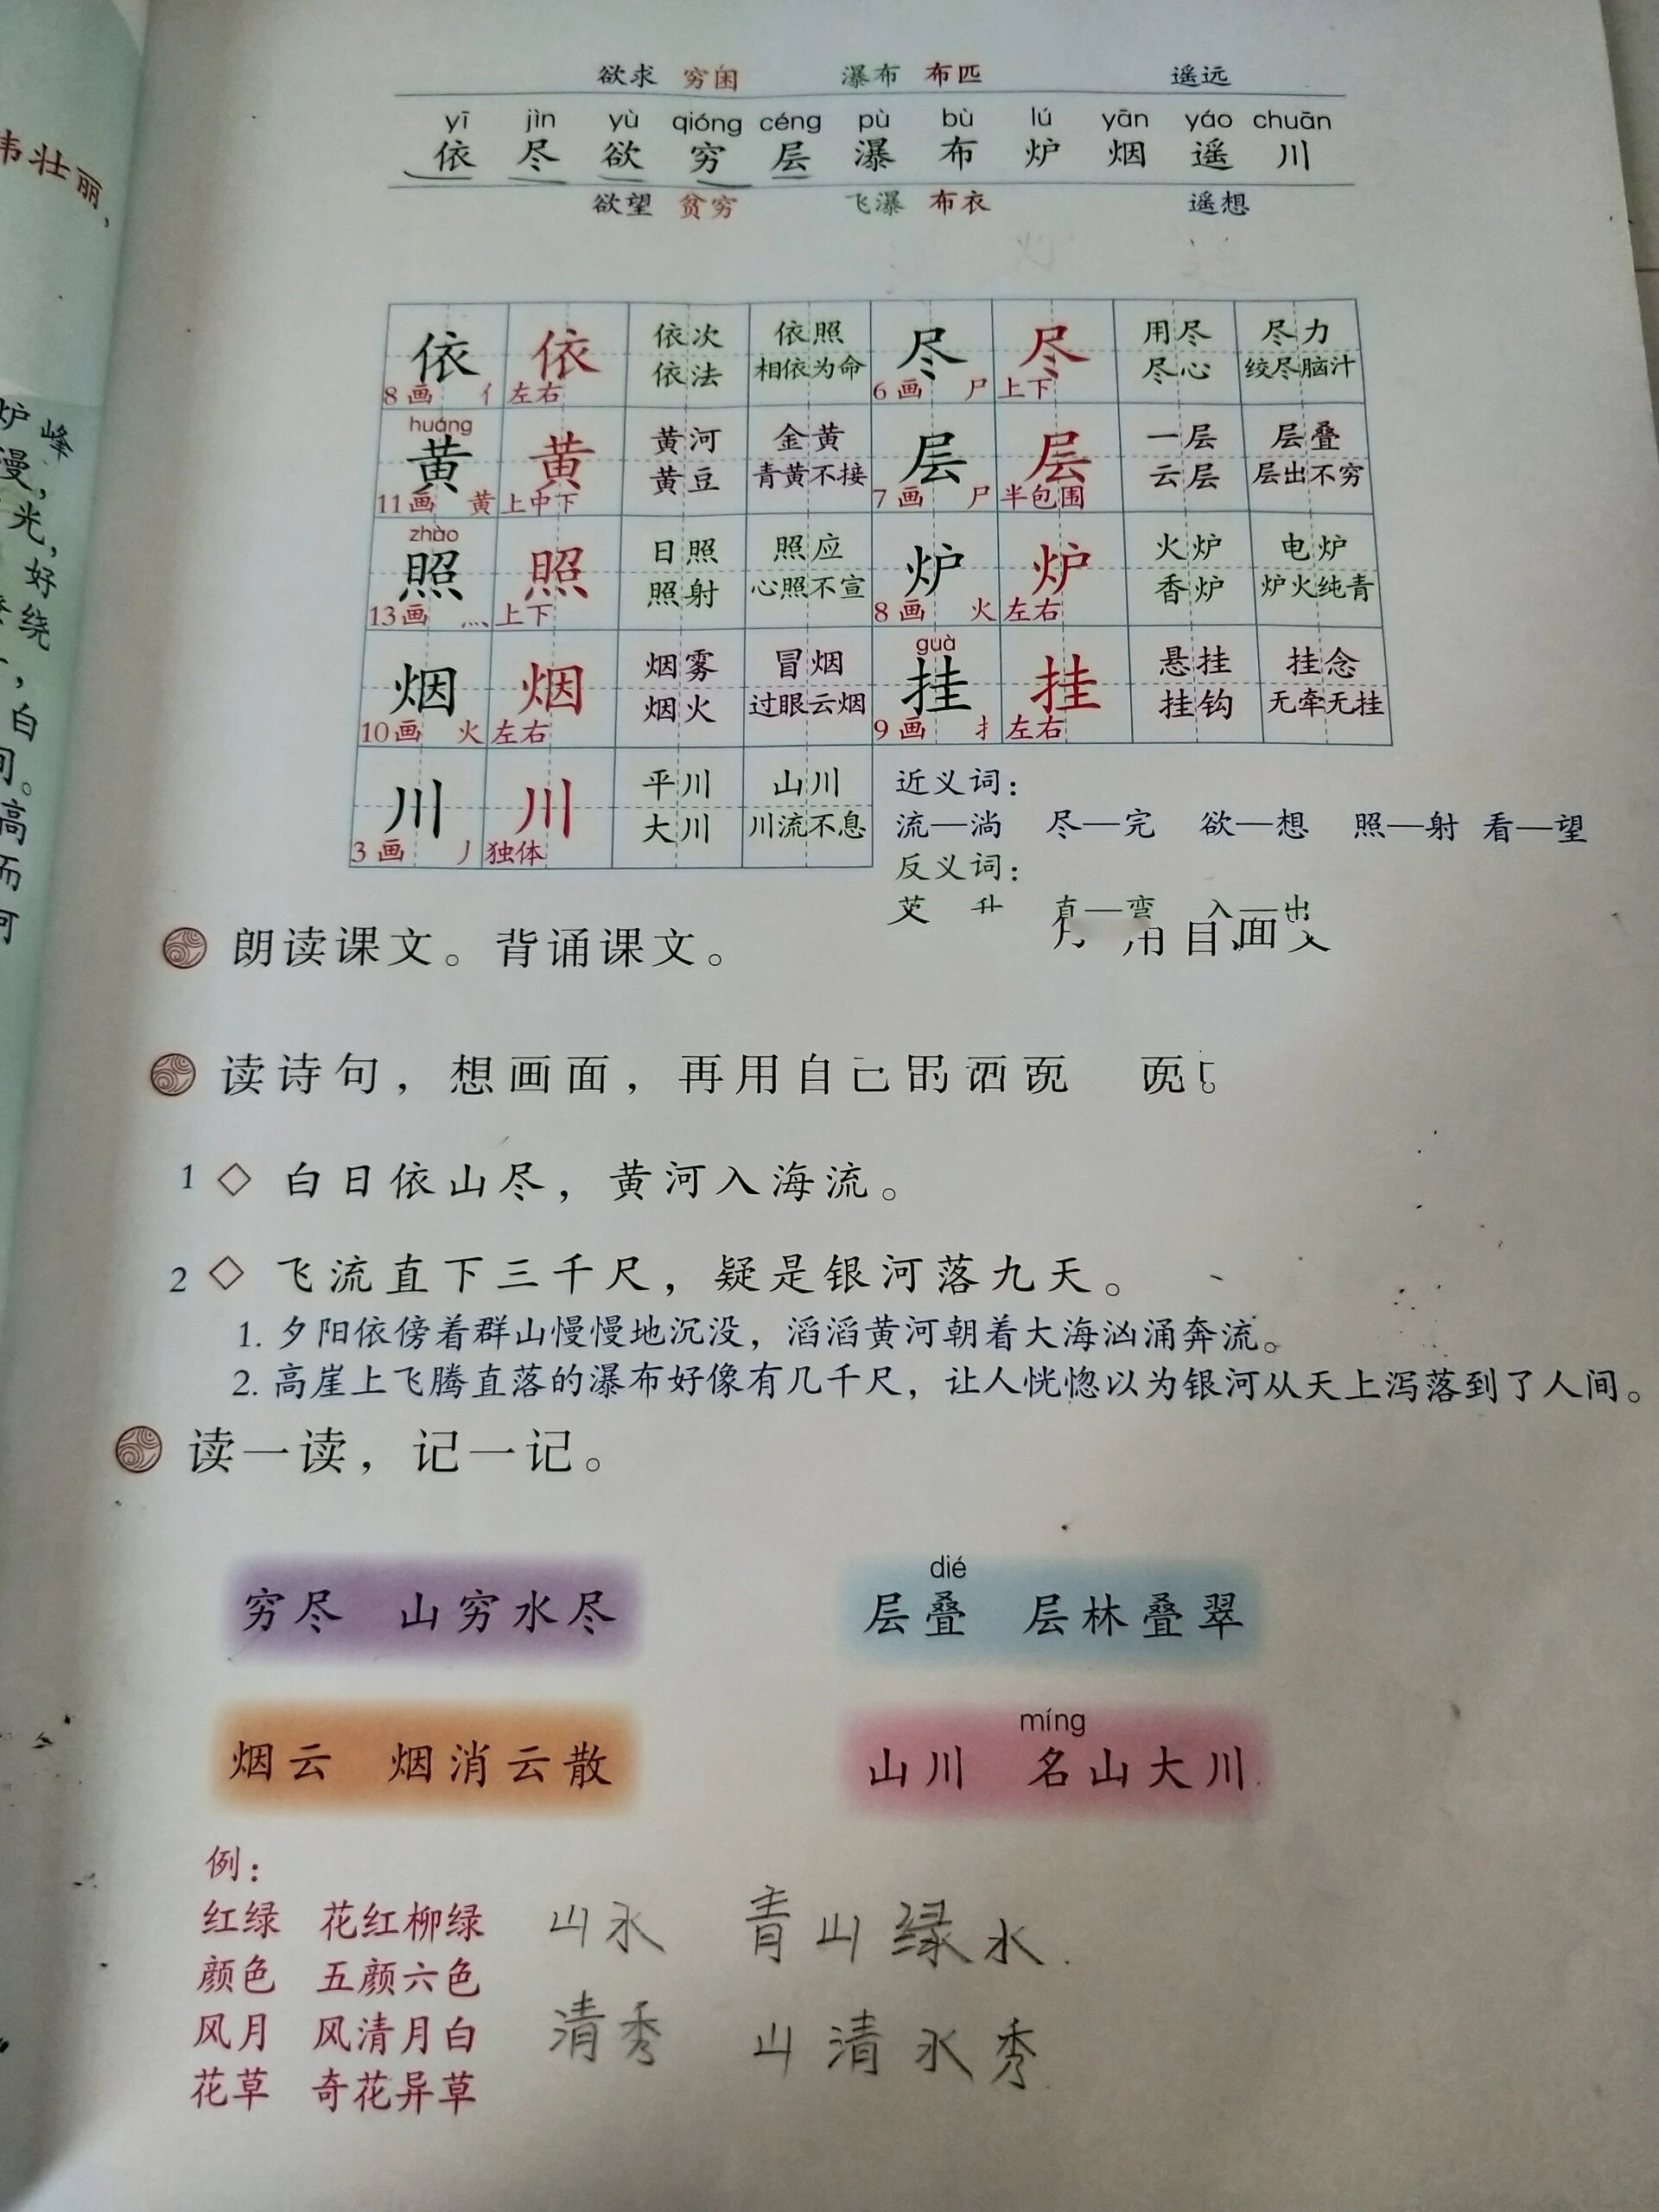 欲求 穷困 瀑布 布匹 遥远
yī jìn yù qióng céng pù bù lú yān yáo chuān
依 尽 欲 穷 层 瀑 布 炉 烟 遥 川
欲望 贫穷 飞瀑 布衣 遥想
依 依 依次 依照 尽 尽 用尽 尽力
依法 相依为命 尽心 绞尽脑汁
8画 亻 左右 6画 尸 上下
huáng
黄 黄 黄河 金黄 层 层 一层 层叠
黄豆 青黄不接 云层 层出不穷
11画 黄 上中下 7画 尸 半包围
zhào
照 照 日照 照应 炉 炉 火炉 电炉
照射 心照不宣 香炉 炉火纯青
13画 灬 上下 8画 火 左右
guà
烟 烟 烟雾 冒烟 挂 挂 悬挂 挂念
烟火 过眼云烟 挂钩 无牵无挂
10画 火 左右 9画 扌 左右
川 川 平川 山川
大川 川流不息
3画 丿 独体
近义词：
流—淌 尽—完 欲—想 照—射 看—望
反义词：
直—弯 入—出
朗读课文。背诵课文。
读诗句，想画面，再用自己的
1 ◇ 白日依山尽，黄河入海流。
2 ◇ 飞流直下三千尺，疑是银河落九天。
1. 夕阳依傍着群山慢慢地沉没，滔滔黄河朝着大海汹涌奔流。
2. 高崖上飞腾直落的瀑布好像有几千尺，让人恍惚以为银河从天上泻落到了人间。
读一读，记一记。
dié
穷尽 山穷水尽 层叠 层林叠翠
míng
烟云 烟消云散 山川 名山大川
例：
红绿 花红柳绿 山水 青山绿水.
颜色 五颜六色
风月 风清月白 清秀 山清水秀
花草 奇花异草
伟壮丽，
炉峰
漫，
光，
好
绕
，白
间。
高
而
河